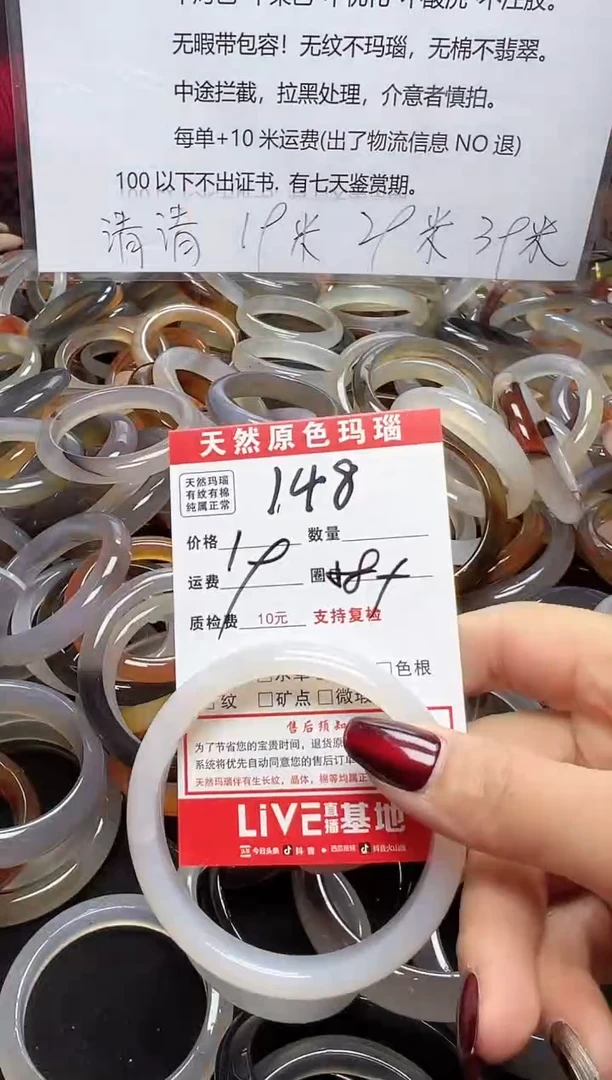 无暇带包容！无纹不玛瑙，无棉不翡翠。
中途拦截，拉黑处理，介意者慎拍。
每单+10 米运费(出了物流信息 NO 退)
100 以下不出证书. 有七天鉴赏期。
清清 19米 29米 39米
天然原色玛瑙
天然玛瑙
有纹有棉
纯属正常
148
价格 数量
运费 圈
质检费 10元 支持复检
色根
纹 □矿点 □微瑕
售后须知
为了节省您的宝贵时间，退货原
系统将优先自动同意您的售后订单
天然玛瑙伴有生长纹，晶体，棉等均属正
LiVE直播基地
今日头条 抖音 西瓜视频 抖音火山版